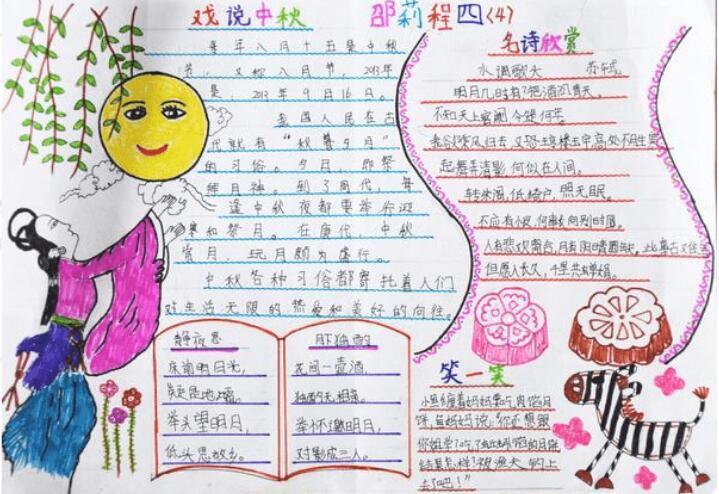 戏说中秋
邵莉程四(4)
每年八月十五是中秋
节，又称八月节，2013年
是，2013年9月16日。
我国人民在古
代就有"秋暮夕月"
的习俗。夕月，即祭
拜月神。到了周代，每
逢中秋夜都要举行迎
寒和祭月。在唐代，中秋
赏月，玩月颇为盛行。
中秋各种习俗都寄托着人们
对生活无限的热爱和美好的向往。
名诗欣赏
水调歌头 苏轼
明月几时有？把酒问青天。
不知天上宫阙，今夕是何年。
我欲乘风归去，又恐琼楼玉宇，高处不胜寒
起舞弄清影，何似在人间。
转朱阁，低绮户，照无眠。
不应有恨，何事长向别时圆。
人有悲欢离合，月有阴晴圆缺，此事古难全
但愿人长久，千里共婵娟。
静夜思
床前明月光，
疑是地上霜。
举头望明月，
低头思故乡。
月下独酌
花间一壶酒，
独酌无相亲。
举杯邀明月，
对影成三人。
笑一笑
小鱼缠着妈妈要吃肉馅月
饼，鱼妈妈说："你还想跟
你姐学
结果怎样？被渔夫钓上
去了吧！"